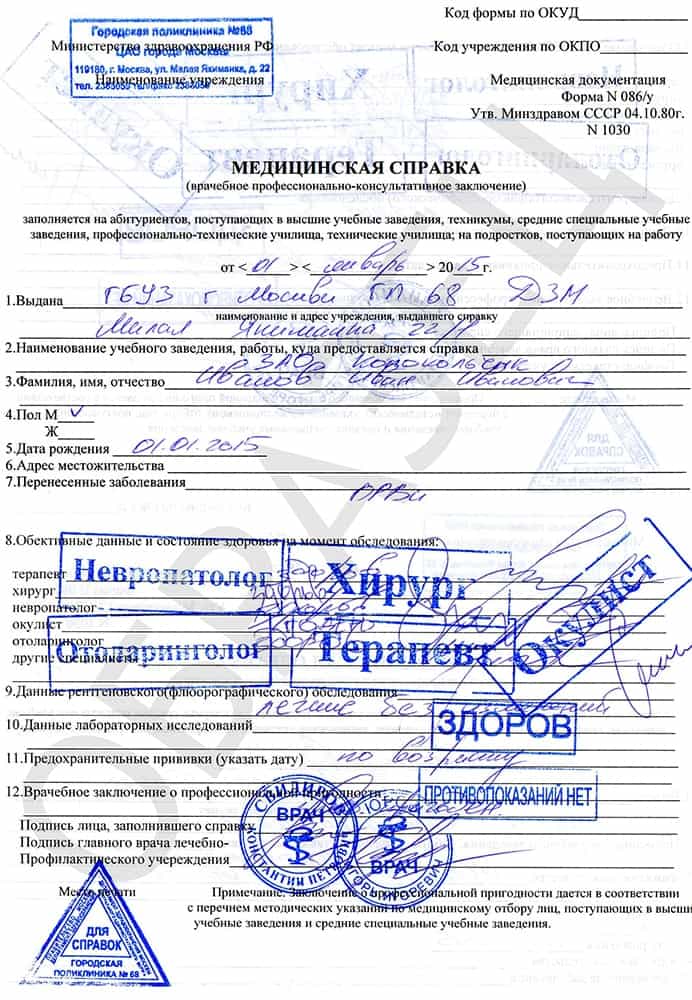 Городская поликлиника №68
ЦАО города Москвы
119180, г. Москва, ул. Малая Якиманка, д. 22
тел. 2385059 тел/факс 2385059
Министерство здравоохранения РФ
Наименование учреждения
Код формы по ОКУД
Код учреждения по ОКПО
Медицинская документация
Форма N 086/у
Утв. Минздравом СССР 04.10.80г.
N 1030
МЕДИЦИНСКАЯ СПРАВКА
(врачебное профессионально-консультативное заключение)
заполняется на абитуриентов, поступающих в высшие учебные заведения, техникумы, средние специальные учебные
заведения, профессионально-технические училища, технические училища; на подростков, поступающих на работу
от < 01 > < январь > 2015г.
1.Выдана ГБУЗ г Москвы ГП 68 ДЗМ
наименование и адрес учреждения, выдавшего справку
Малая Якиманка 22/
2.Наименование учебного заведения, работы, куда предоставляется справка
ЗАО
3.Фамилия, имя, отчество Иванов Иван Иванович
4.Пол М V
Ж
5.Дата рождения 01.01.2015
6.Адрес местожительства
7.Перенесенные заболевания
ОРВИ
8.Обективные данные и состояние здоровья на момент обследования:
терапевт здоров
хирург здоров
невропатолог здоров
окулист здоров
отоларинголог здоров
другие специалисты
Невропатолог
Хирург
Окулист
Отоларинголог
Терапевт
9.Данные рентгеновского(флюорографического) обследования
легкие без
ЗДОРОВ
10.Данные лабораторных исследований
11.Предохранительные прививки (указать дату) по возрасту
12.Врачебное заключение о профессиональной пригодности
ПРОТИВОПОКАЗАНИЙ НЕТ
Подпись лица, заполнившего справку
Подпись главного врача лечебно-
Профилактического учереждения
ВРАЧ
КОНСТАНТИН ПЕТРОВИЧ
ВРАЧ
ИГОРЬ ИГОРЕВИЧ
Место печати
Примечание. Заключение о профессиональной пригодности дается в соответствии
с перечнем методических указаний по медицинскому отбору лиц, поступающих в высшие
учебные заведения и средние специальные учебные заведения.
ДЛЯ
СПРАВОК
ГОРОДСКАЯ
ПОЛИКЛИНИКА № 68
ОБРАЗЕЦ